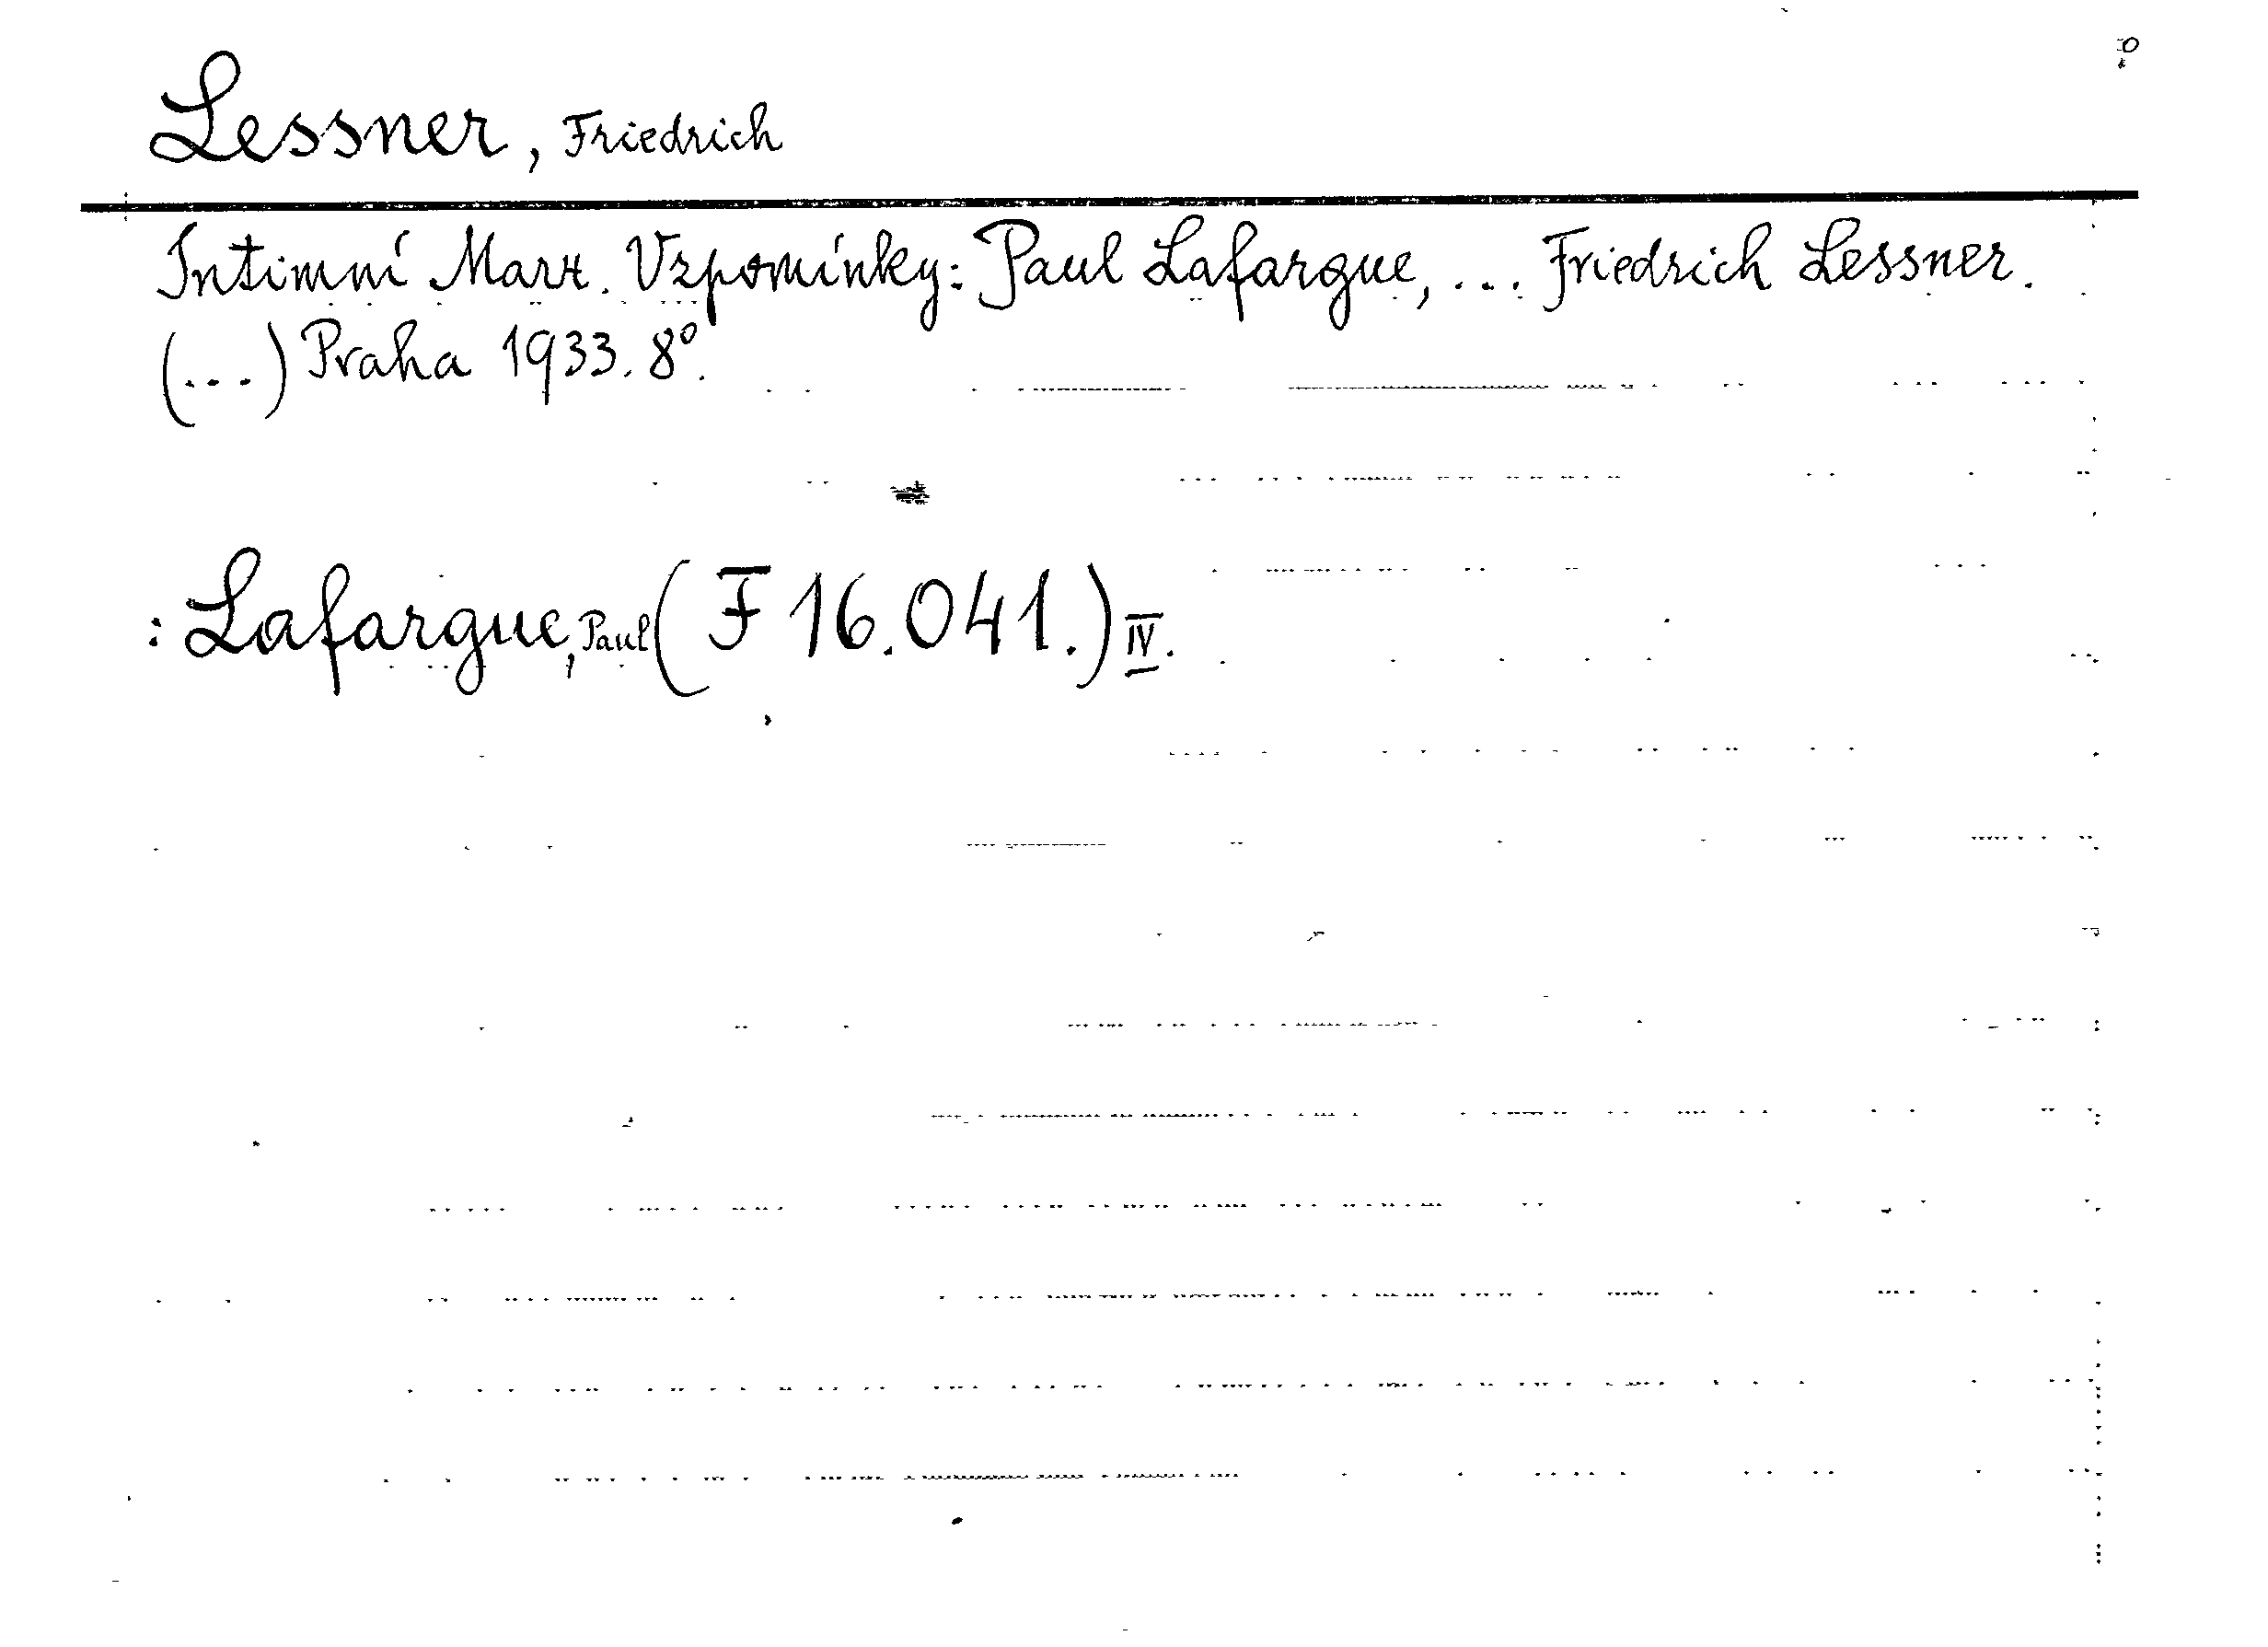 Lessner, Friedrich
Intimní Marx. Vzpomínky: Paul Lafargue, ... Friedrich Lessner.
(...) Praha 1933. 8º.
: Lafargue, Paul (F 16.041.) IV.